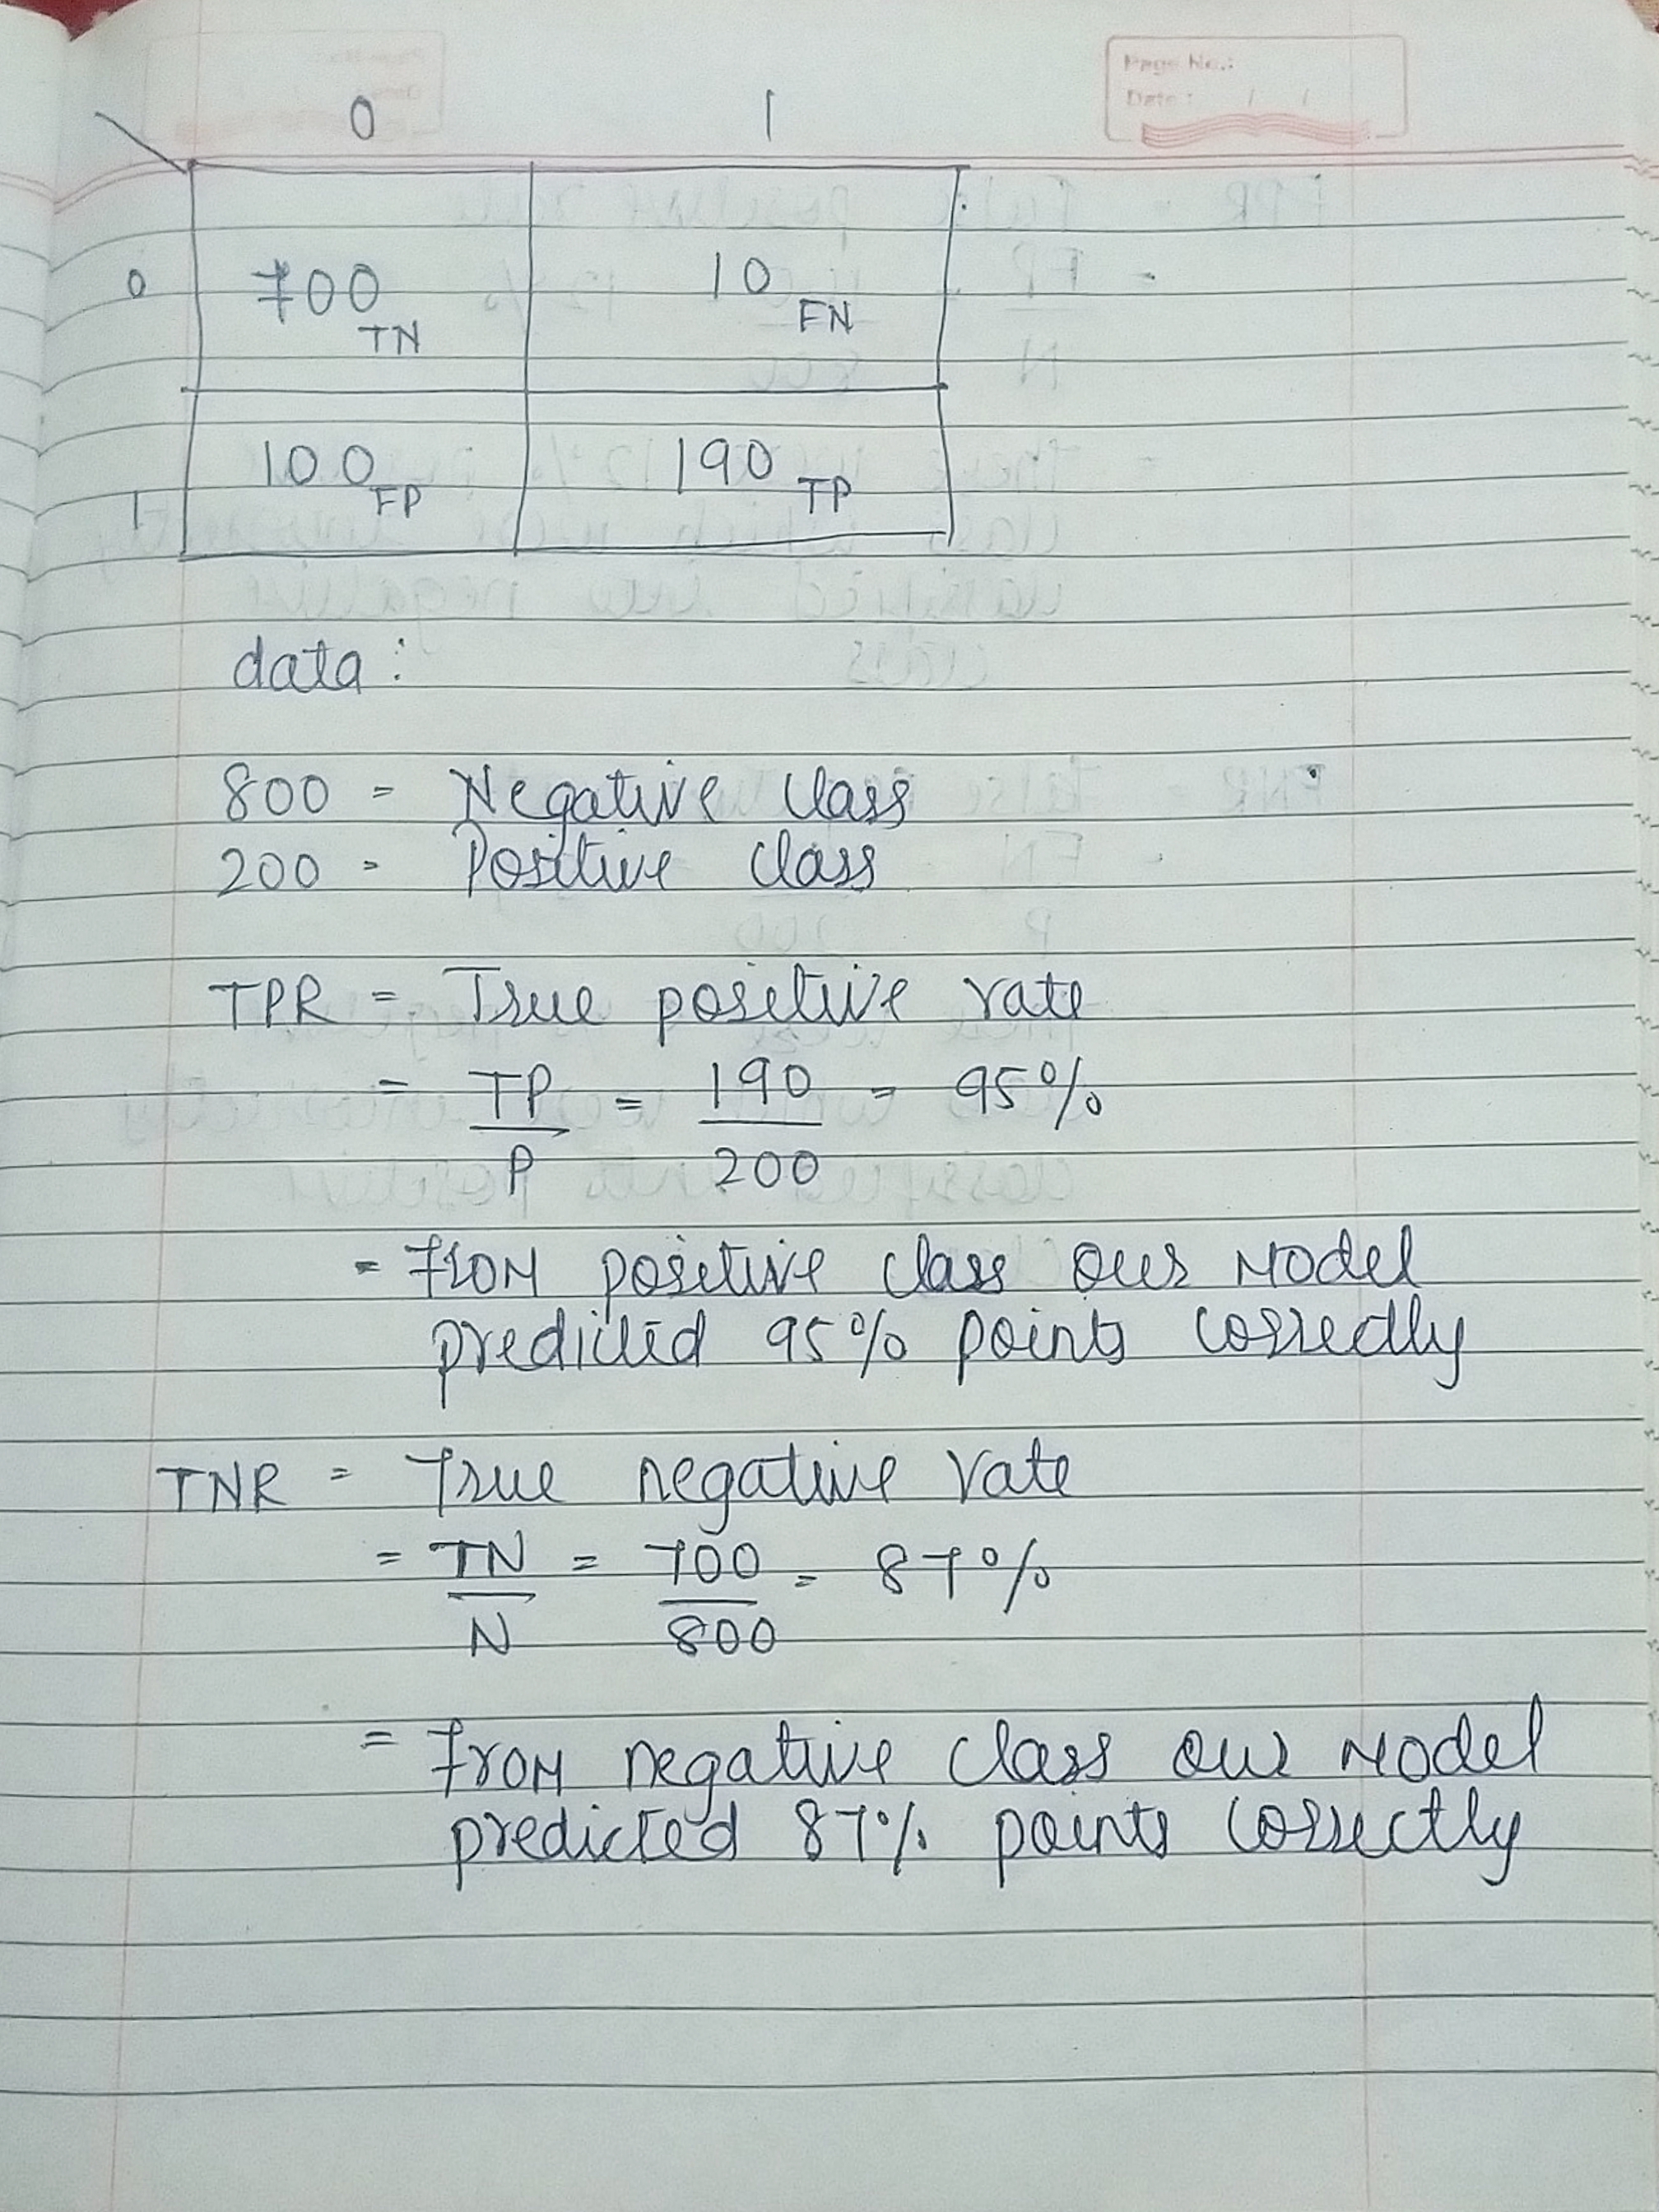 Page No.:
Date: / /
0 1
0 700 TN 10 FN
1 100 FP 190 TP
data:
800 = Negative class
200 = Positive class
TPR = True positive rate
= TP = 190 = 95%
P 200
= From positive class our model
predicted 95% points correctly
TNR = True negative rate
= TN = 700 = 87%
N 800
= From negative class our model
predicted 87% points correctly